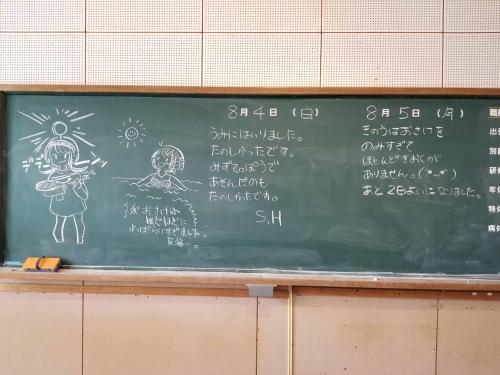 8月4日(日)
うみにはいりました。
たのしかったです。
みずでっぽうで
あそんだのも
たのしかったです。
S.H
8月5日(月)
きのうはおさけを
のみすぎて
ほとんどきおくが
ありません。
あと2日よいになりました。
おさけは
ほどほどに
よっぱらいすぎました。